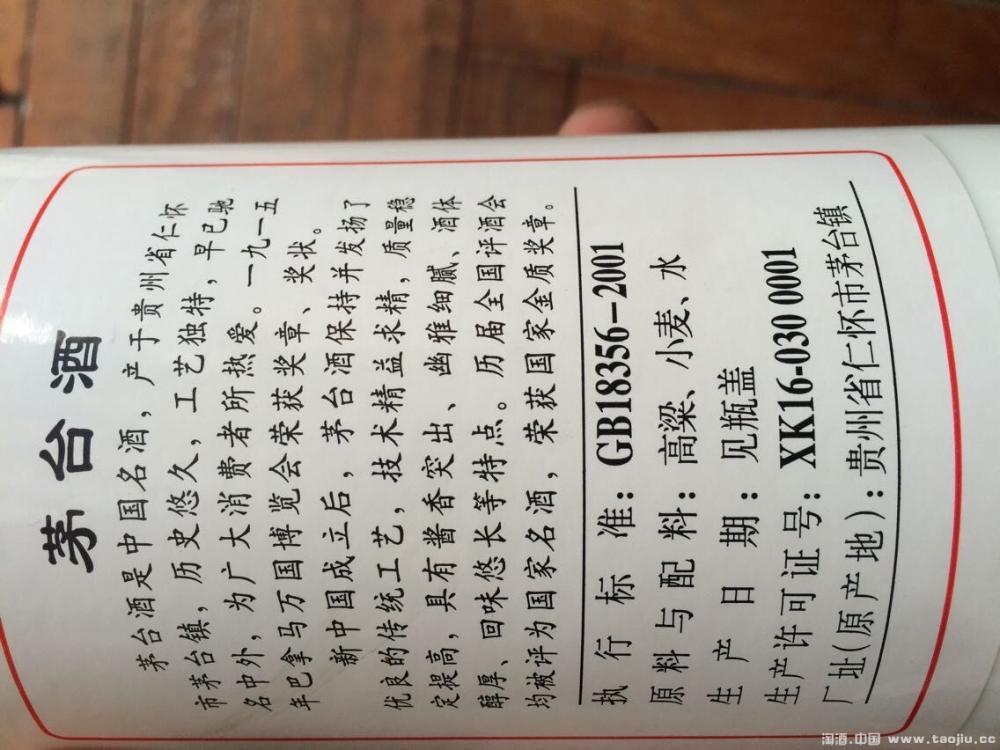 茅台酒
茅台酒是中国名酒，产于贵州省仁怀
市茅台镇，历史悠久，工艺独特，早已驰
名中外，为广大消费者所热爱。一九一五
年巴拿马万国博览会荣获奖章、奖状。
新中国成立后，茅台酒保持并发扬了
优良的传统工艺，技术精益求精，质量稳
定提高，具有酱香突出、幽雅细腻、酒体
醇厚、回味悠长等特点。历届全国评酒会
均被评为国家名酒，荣获国家金质奖章。
执行标准：GB18356-2001
原料与配料：高粱、小麦、水
生产日期：见瓶盖
生产许可证号：XK16-030 0001
厂址(原产地)：贵州省仁怀市茅台镇
淘酒.中国 www.taojiu.cc